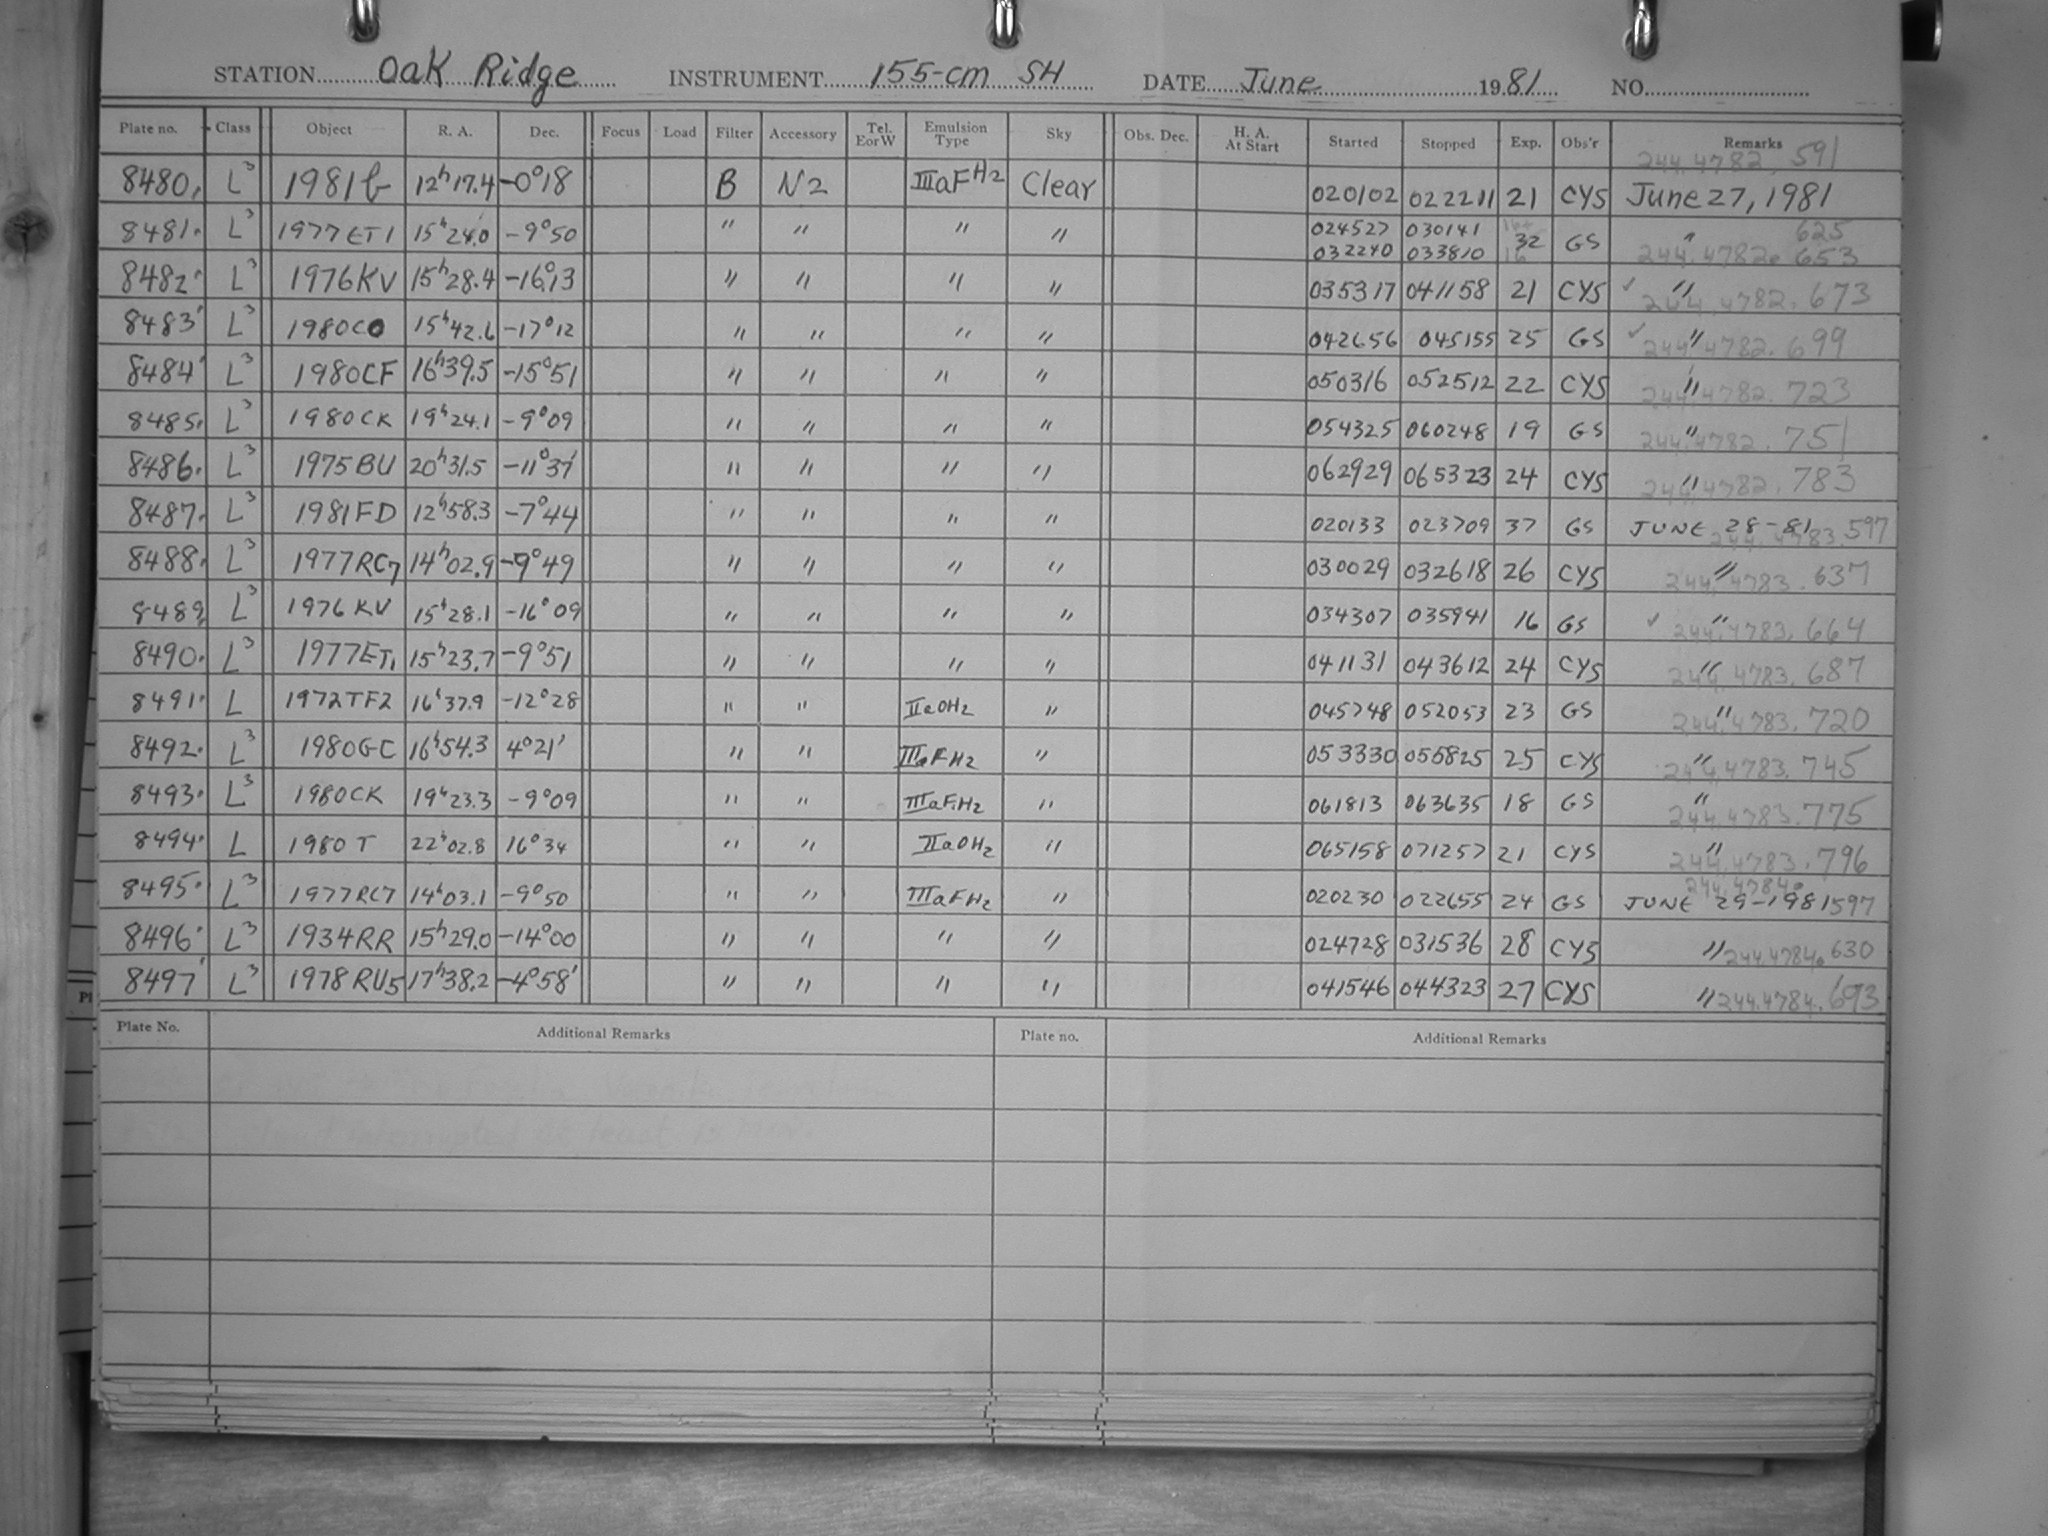 STATION Oak Ridge INSTRUMENT 155-cm SH DATE June 1981 NO.
Plate no. Class Object R. A. Dec. Focus Load Filter Accessory Tel. E or W Emulsion Type Sky Obs. Dec. H. A. At Start Started Stopped Exp. Obs'r Remarks
244.4782.591
8480 L3 1981b 12h17.4 -0°18 B N2 IIIaFH2 Clear 020102 022211 21 CYS June 27, 1981
8481 L3 1977ET1 15h24.0 -9°50 " " " " 024527 030141 32 GS " 625
032240 033810 16 244.4782.653
8482 L3 1976KV 15h28.4 -16°13 " " " " 035317 041158 21 CYS ✓ " 244.4782.673
8483 L3 1980CO 15h42.6 -17°12 " " " " 042656 045155 25 GS ✓ " 244.4782.699
8484 L3 1980CF 16h39.5 -15°51 " " " " 050316 052512 22 CYS " 244.4782.723
8485 L3 1980CK 19h24.1 -9°09 " " " " 054325 060248 19 GS " 244.4782.751
8486 L3 1975BU 20h31.5 -11°37 " " " " 062929 065323 24 CYS " 244.4782.783
8487 L3 1981FD 12h58.3 -7°44 " " " " 020133 023709 37 GS JUNE 28-81 244.4783.597
8488 L3 1977RC7 14h02.9 -9°49 " " " " 030029 032618 26 CYS " 244.4783.637
8489 L3 1976KV 15h28.1 -16°09 " " " " 034307 035941 16 GS ✓ " 244.4783.664
8490 L3 1977ET1 15h23.7 -9°51 " " " " 041131 043612 24 CYS " 244.4783.687
8491 L 1972TF2 16h37.9 -12°28 " " IIaOH2 " 045748 052053 23 GS " 244.4783.720
8492 L3 1980GC 16h54.3 4°21' " " IIIaFH2 " 053330 055825 25 CYS " 244.4783.745
8493 L3 1980CK 19h23.3 -9°09 " " IIIaFH2 " 061813 063635 18 GS " 244.4783.775
8494 L 1980T 22h02.8 16°34 " " IIaOH2 " 065158 071257 21 CYS " 244.4783.796
8495 L3 1977RC7 14h03.1 -9°50 " " IIIaFH2 " 020230 022655 24 GS JUNE 29-1981 244.4784.597
8496 L3 1934RR 15h29.0 -14°00 " " " " 024728 031536 28 CYS " 244.4784.630
8497 L3 1978RU5 17h38.2 -4°58' " " " " 041546 044323 27 CYS " 244.4784.693
Plate No. Additional Remarks Plate no. Additional Remarks